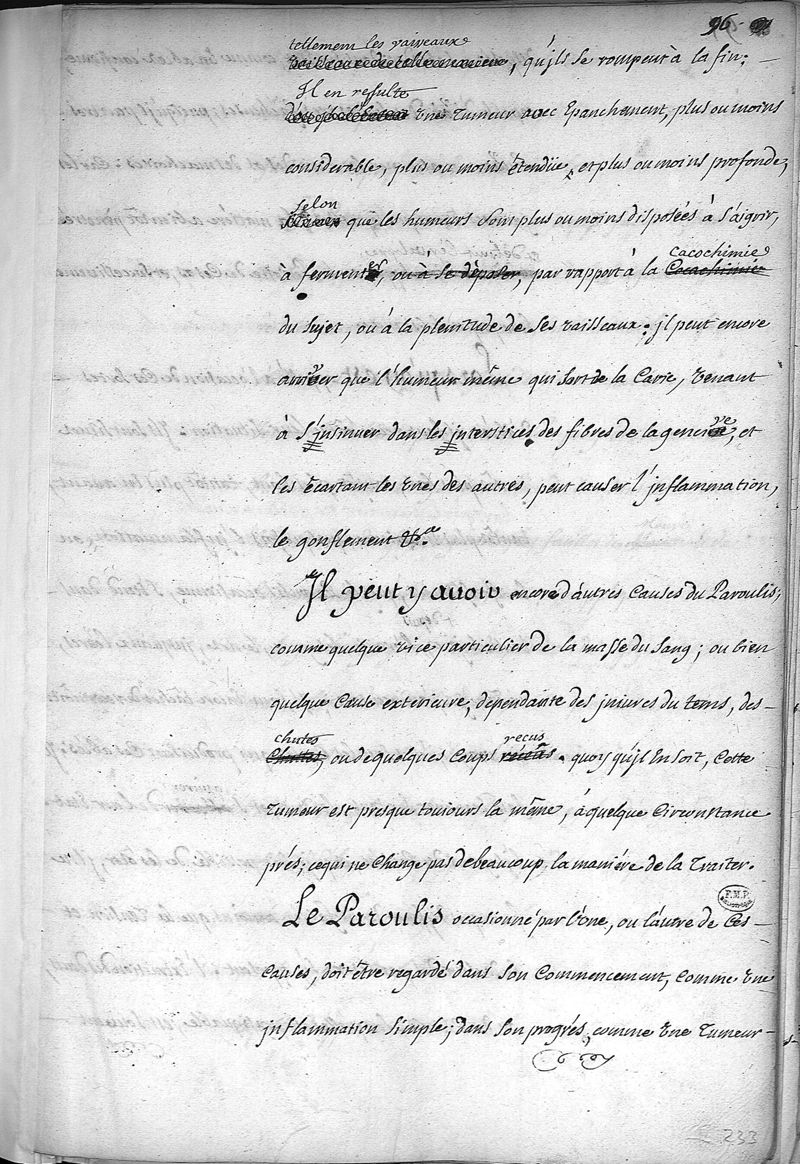 96
tellement les vaisseaux
, qu'jls se rompent à la fin; —
Il en resulte
Une Tumeur avec Epanchement, plus ou moins
considerable, plus ou moins étendüe, et plus ou moins profonde,
selon
que les humeurs sont plus ou moins disposées à s'aigrir,
cacochimie
à fermenter, ou à se dèpaser, par rapport à la Cocachimie
du sujet, ou à la plenitude de ses vaisseaux. jl peut encore
arriver que l'humeur même qui sort de la Carie, venant
à s'jnsinuer dans les jnterstices des fibres de la gencive, et
les écartant les Unes des autres, peut causer l'jnflammation,
le gonflement &ca
Il peut y avoir encore d'autres Causes du Paroulis,
comme quelque vice particulier de la masse du sang; ou bien
quelque Cause exterieure, dependante des jnjures du tems, des —
chutes recus
Chuttes, ou de quelques Coups réceüs. quoy qu'jl En soit, Cette
Tumeur est presque toujours la même, à quelque Circonstance
prés; ce qui ne Change pas de beaucoup la maniére de la Traiter.
F.M.P.
Le Paroulis occasionné par l'Une, ou l'autre de Ces —
Causes, doit être regardé dans son Commencement, Comme Une
jnflammation simple; dans son progrés, comme Une Tumeur —
233